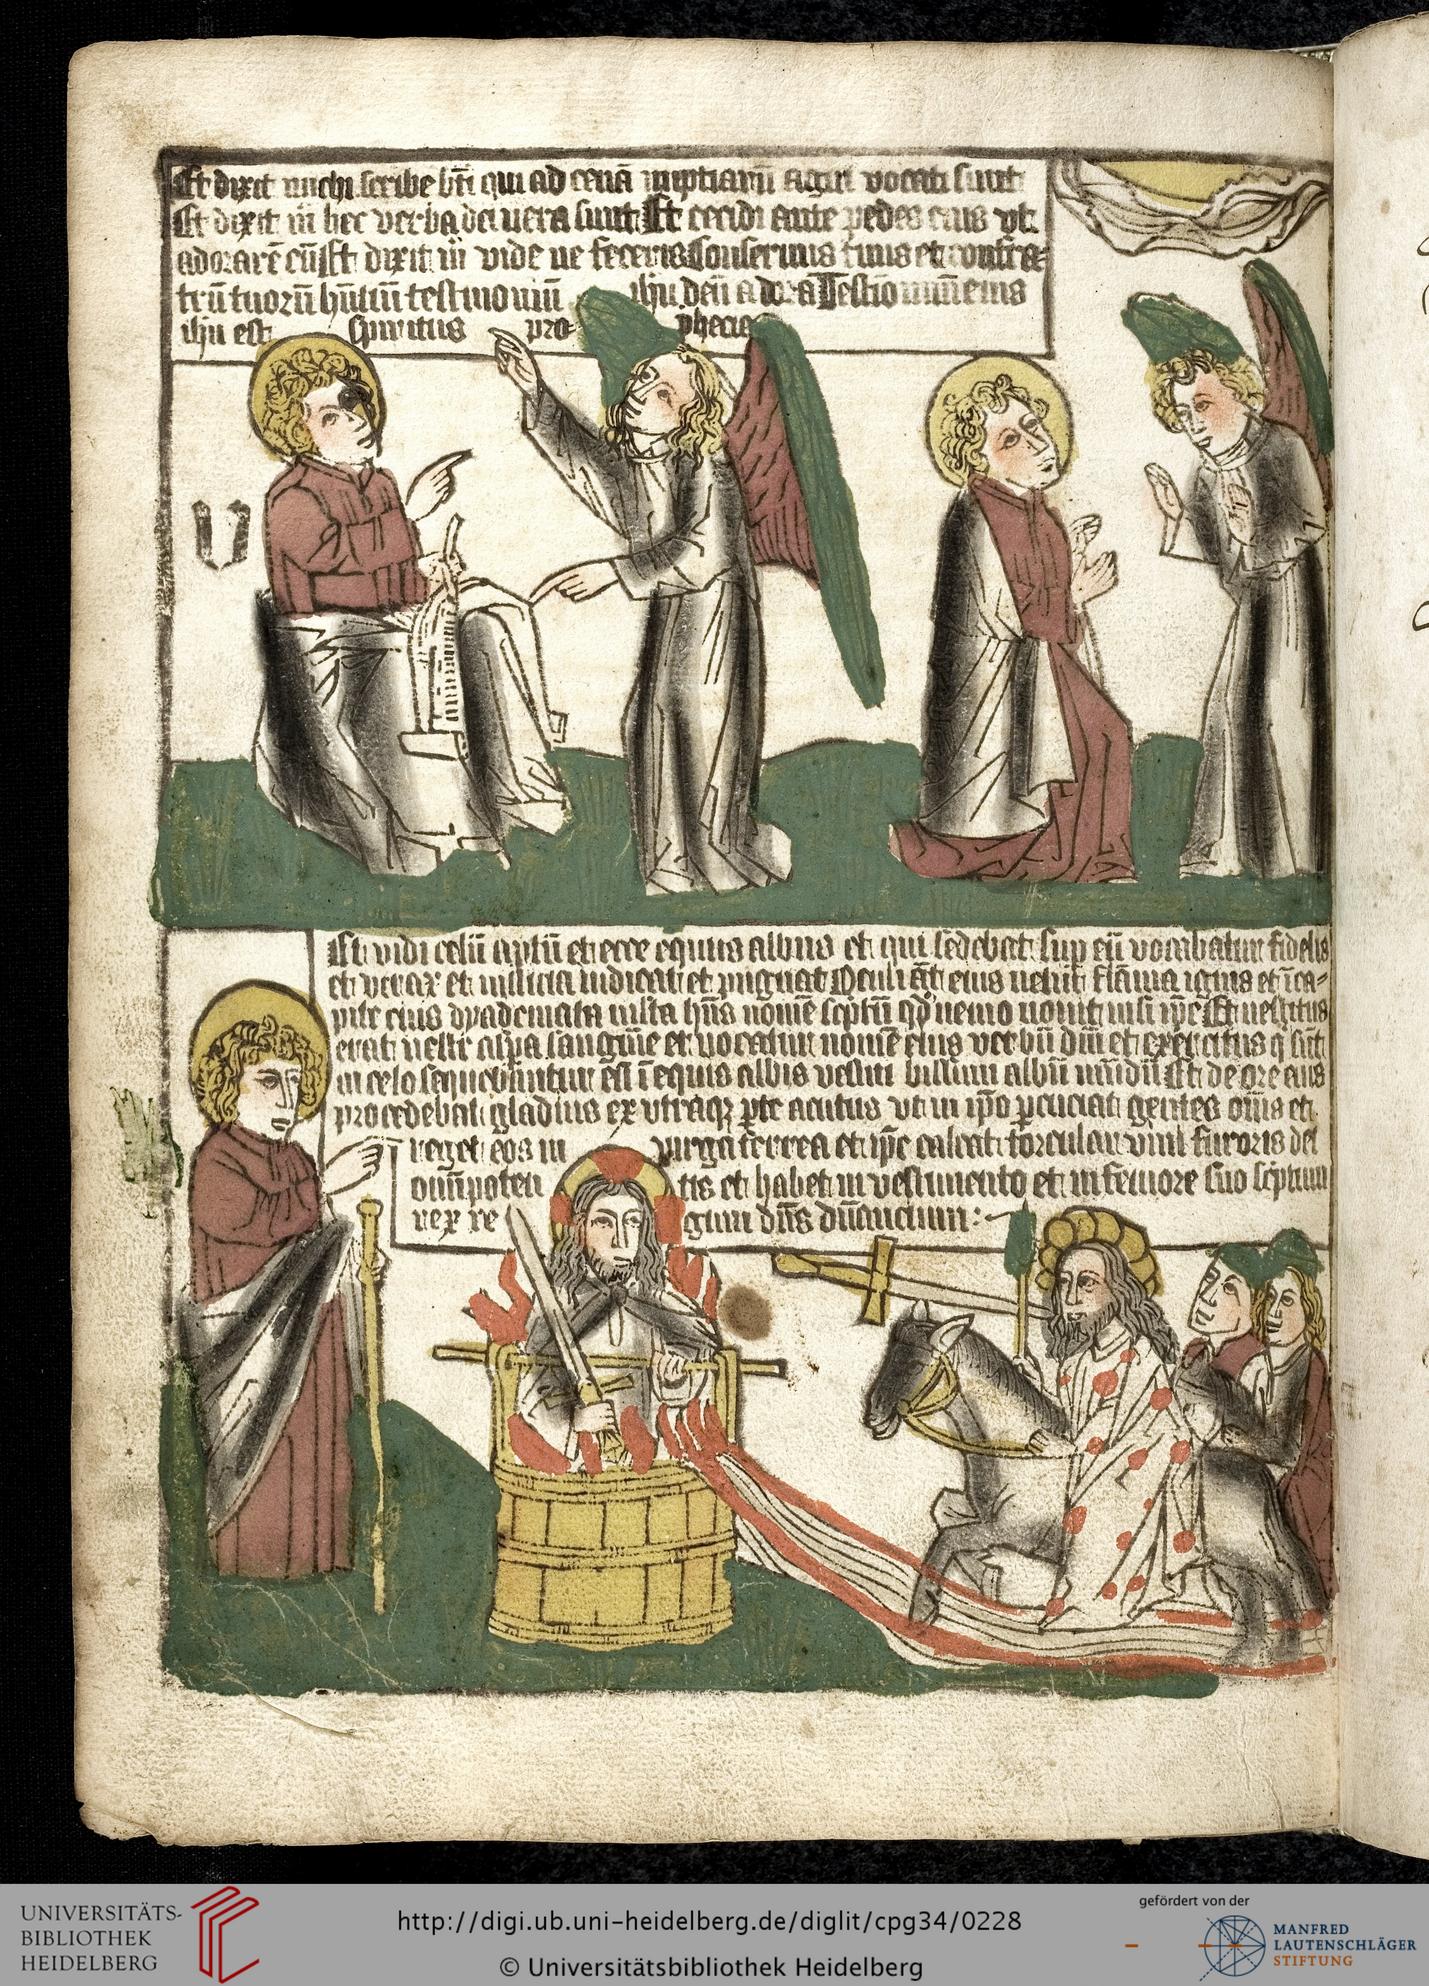 Et dixit michi scribe bti qui ad cenā nuptiarū agni vocati sunt
Et dixit m̄ hec verba dei vera sunt Et cecidi ante pedes eius vt
adorarē eū Et dixit m̄ vide ne feceris Conservus tuus et confra-
trū tuorū hntiū testimoniū ihu deū adora Testimonium enim
ihu est spiritus pro- phecie
U
Et vidi celū aptū et ecce equus albus et qui sedebat sup eū vocabatur fidelis
et verax et iusticia iudicat et pugnat Oculi āt eius velut flāma ignis et ī ca-
pite eius dyademata multa hn̄s nomē scptū qd' nemo novit nisi ip̄e Et vestitus
erat veste aspsa sanguīe et vocatur nomē eius verbū dei et exercitus q sūt
in celo sequebantur eū ī equis albis vestiti bissum albū mūdū Et de ore eius
procedebat gladius ex vtraq pte acutus vt in ipo pcuciat gentes om̄s et
reget eos in virga ferrea et ip̄e calcat torcular vini furoris dei
omipoten tis et habet in vestimento et in femore suo scptum
rex re gum dn̄s dn̄ancium:
UNIVERSITÄTS-
BIBLIOTHEK
HEIDELBERG
http://digi.ub.uni-heidelberg.de/diglit/cpg34/0228
© Universitätsbibliothek Heidelberg
gefördert von der
MANFRED
LAUTENSCHLÄGER
STIFTUNG